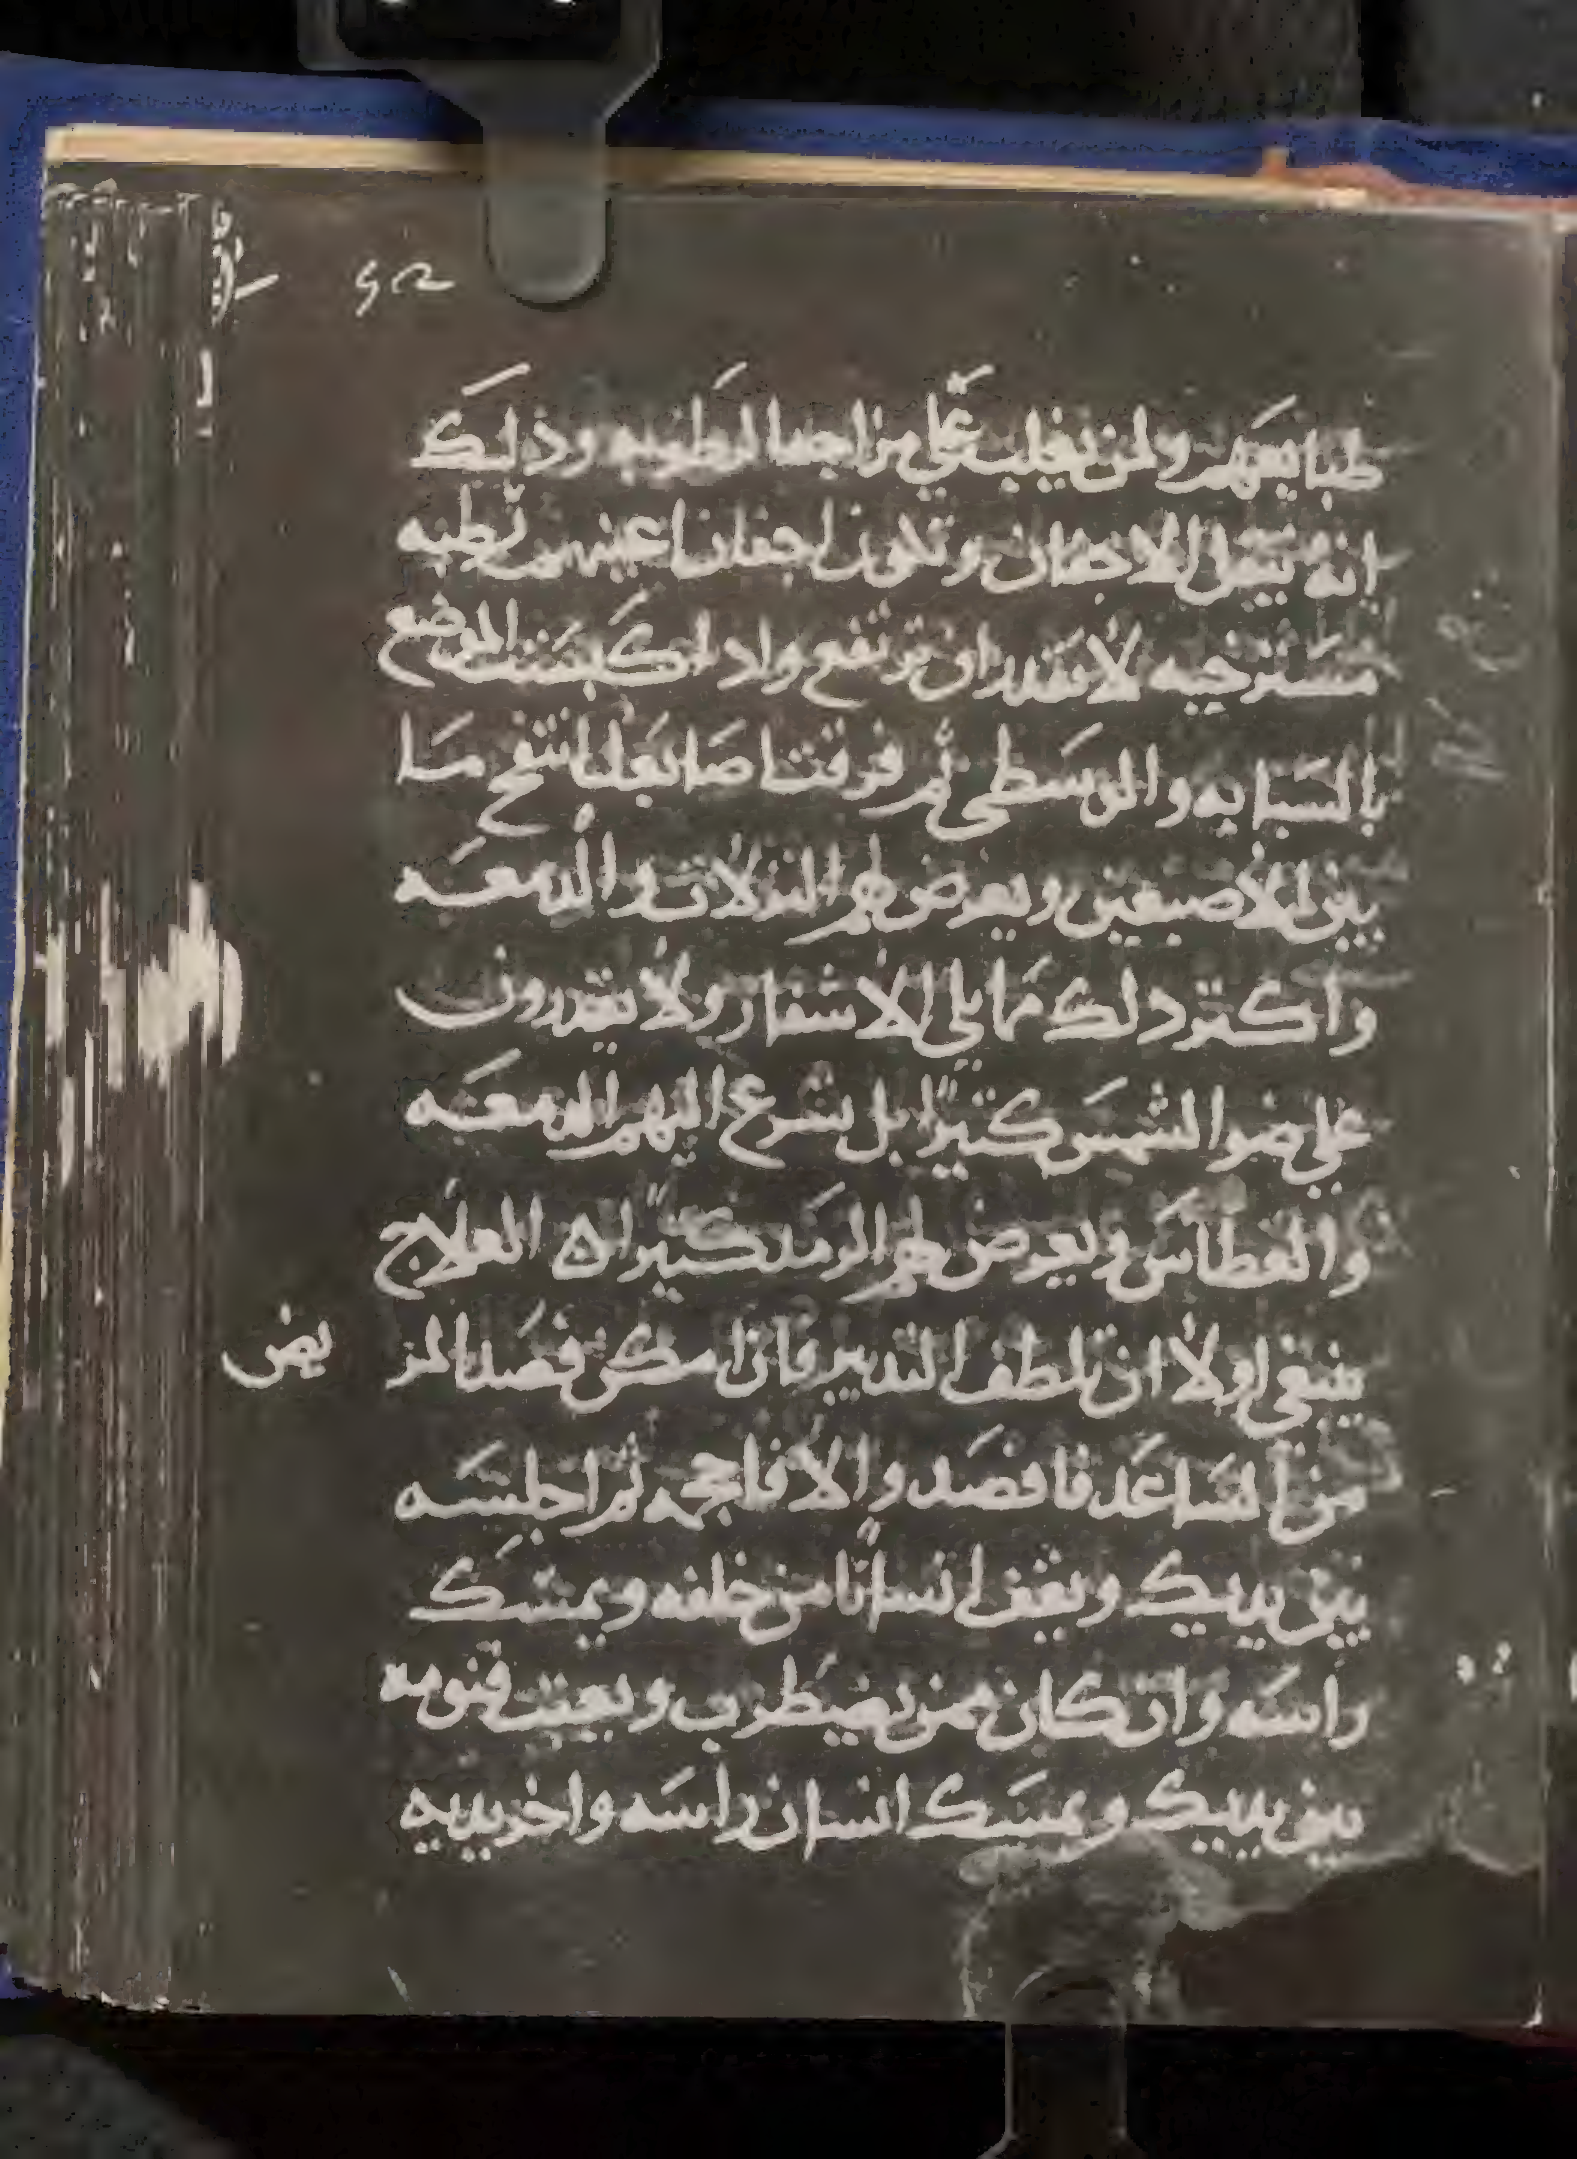 طبايعهم ولمن يغلب علي مزاجها الرطوبه وذلك
انه يثقل الاجفان وتكون اجفان اعينهم رطبه
مسترخيه لا تقدر ان ترتفع واذا كبست الموضع
بالسبابه والوسطي ثم فرقت اصابعك انتفخ ما
بين الاصبعين ويعرض لهم النزلات والدمعه
واكثر ذلك مما يلي الاشفار ولا يقدرون
علي ضوا الشمس كثيرا بل تسرع اليهم الدمعه
والعطاس ويعرض لهم الرمد كثيرا العلاج
ينبغي اولا ان تلطف التدبير فان امكن فصد المر
يض
من الساعد فافصد والا فاحجمه ثم اجلسه
بين يديك ويقف انسانا من خلفه ويمسك
راسه وان كان ممن يضطرب ويعبث فنومه
بين يديك ويمسك انسان راسه واخر يديه